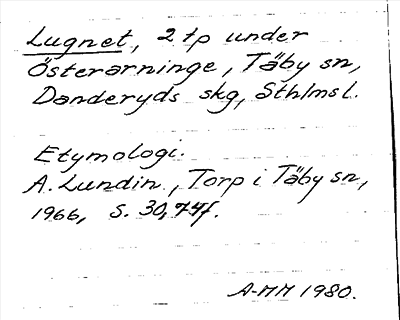 Lugnet, 2 tp under
Österarninge, Täby sn,
Danderyds skg, Sthlms l.
Etymologi.
A. Lundin, Torp i Täby sn,
1966, s. 30, 74f.
A-MM 1980.